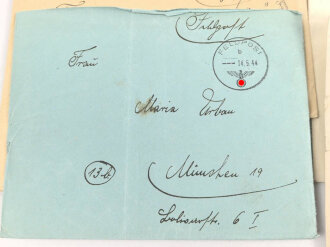 Feldpost
FELDPOST
b
14.5.44
Frau
Maria Urbau
13-b
München 19
6 I